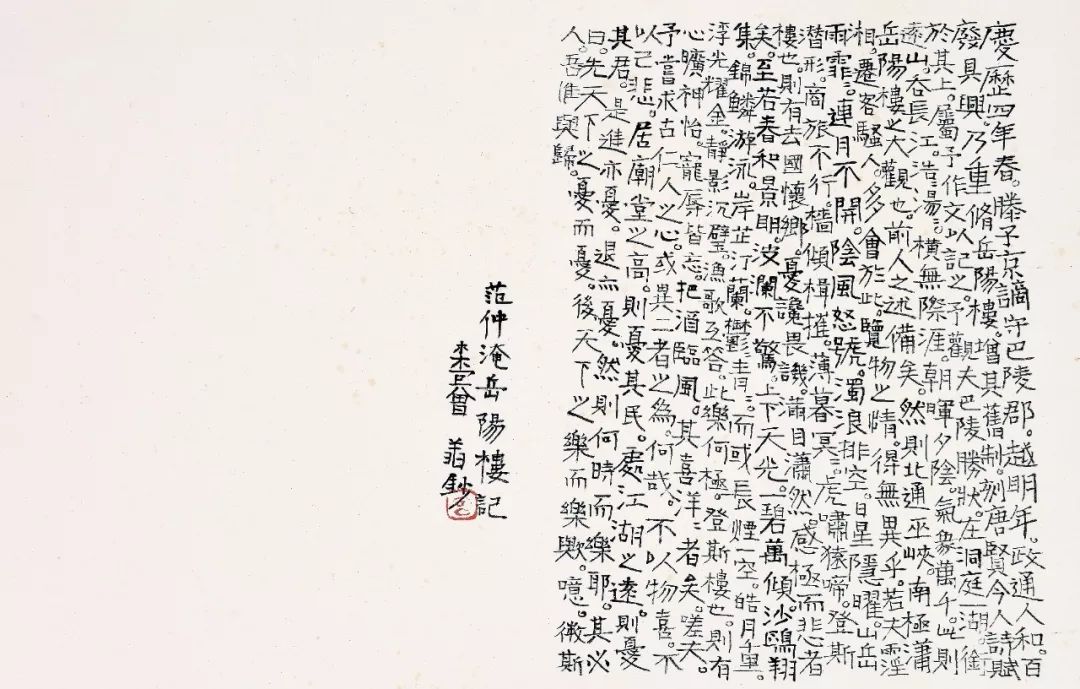 慶歷四年春。滕子京謫守巴陵郡。越明年。政通人和。百
廢具興乃重脩岳陽樓。增其舊制。刻唐賢今人詩賦
於其上。屬予作文以記之。予觀夫巴陵勝狀。在洞庭一湖。銜
遠山。吞長江。浩〻湯〻。橫無際涯。朝暉夕陰。氣象萬千。此則
岳陽樓之大觀也。前人之述備矣。然則北通巫峽。南極瀟
湘。遷客騷人。多會於此。覽物之情。得無異乎。若夫霪
雨霏〻。連月不開。陰風怒號。濁浪排空。日星隱曜。山岳
潛形。商旅不行。檣傾楫摧。薄暮冥〻。虎嘯猿啼。登斯
樓也。則有去國懷鄉。憂讒畏譏。滿目蕭然。感極而悲者
矣。至若春和景明。波瀾不驚。上下天光。一碧萬傾。沙鷗翔
集。錦鱗游泳。岸芷汀蘭。鬱〻青〻。而或長煙一空。皓月千里。
浮光耀金。靜影沉璧。漁歌互答。此樂何極。登斯樓也。則有
心曠神怡。寵辱皆忘。把酒臨風。其喜洋〻者矣。嗟夫。
予嘗求古仁人之心。或異二者之為。何哉。不以物喜。不
以己悲。居廟堂之高。則憂其民。處江湖之遠。則憂
其君。是進亦憂。退亦憂。然則何時而樂耶。其必
曰。先天下之憂而憂。後天下之樂而樂歟。噫。微斯
人。吾誰與歸。
范仲淹岳陽樓記
鈔